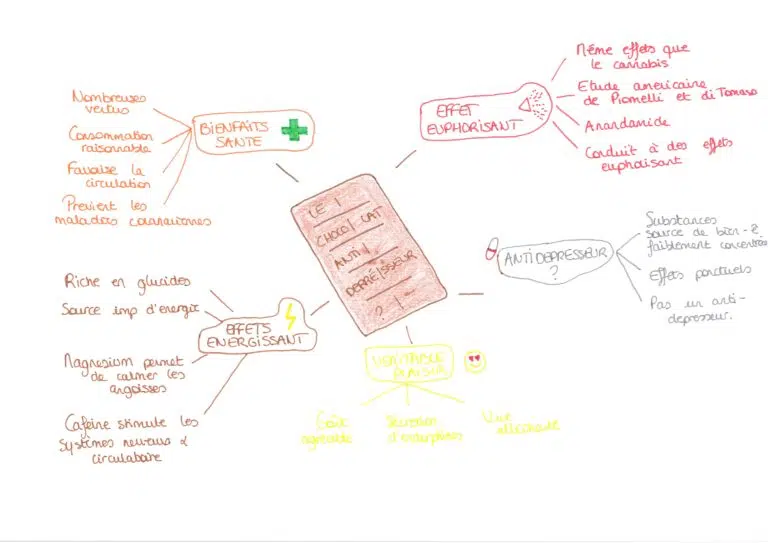 LE
CHOCOLAT
ANTI
DEPRESSEUR
?
BIENFAITS
SANTE
Nombreuses
vertus
Consommation
raisonnable
Favorise la
circulation
Previent les
maladies coronariennes
EFFET
EUPHORISANT
Même effets que
le cannabis
Etude américaine
de Piomelli et di Tomaso
Anandamide
Conduit à des effets
euphorisant
ANTIDEPRESSEUR
?
Substances
source de bien-ê
faiblement concentrés
Effets ponctuels
Pas un anti-
depresseur.
VERITABLE
PLAISIR
Goût
agréable
Sécrétion
d'endorphines
Vue
alléchante
EFFETS
ENERGISSANT
Riche en glucides
Source imp d'energie
Magnesium permet
de calmer les
angoisses
Caféine stimule les
systèmes nerveux &
circulatoire